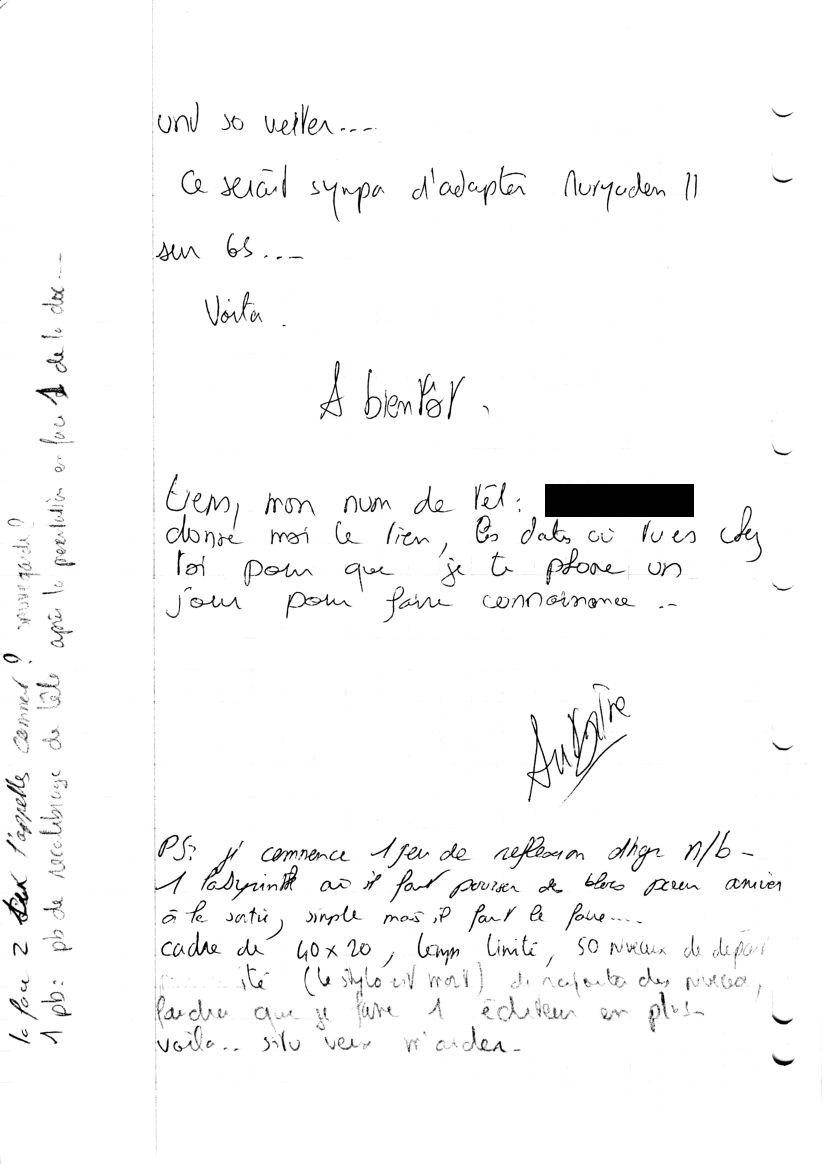 und so weiter....
Ce serait sympa d'adapter Nuryaden II
sur GS....
Voilà.
A bientôt.
tiens, mon num de tél:
donne moi le tien, les dates où tu es chez
toi pour que je te phone un
jour pour faire connaissance ..
PS: j' commence 1 jeu de reflexion dhgr n/b -
1 labyrinthe où il faut pousser des blocs pour arriver
à la sortie, simple mais il faut le faire....
cadre de 40x20, temps limité, 50 niveaux de départ
(le stylo est mort) de rajouter des niveau,
faudra que je fasse 1 éditeur en plus-
voila.. si tu veux m'aider-
la face 2 s'appelle comment? sauvegarde?
1 pb: pb de recalibrage de tête après la présentation en face 1 de la doc...